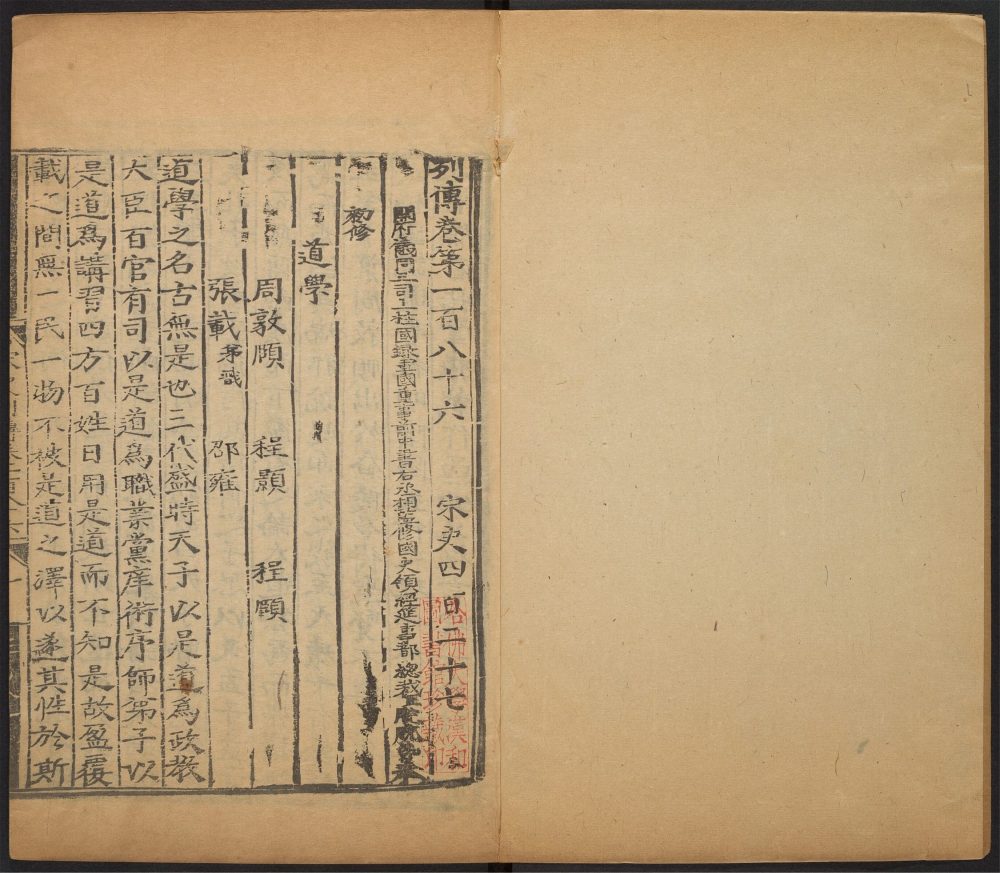 列傳卷第一百八十六 宋史四百二十七
開府儀同三司上柱國錄軍國重事前中書右丞相監修國史領經筵事都總裁
勑修
道學
周敦頤 程顥 程頤
張載弟戩 邵雍
道學之名古無是也三代盛時天子以是道為政教
大臣百官有司以是道為職業黨庠術序師弟子以
是道為講習四方百姓日用是道而不知是故盈覆
載之間無一民一物不被是道之澤以遂其性於斯
哈佛大學漢和
圖書館珍藏印